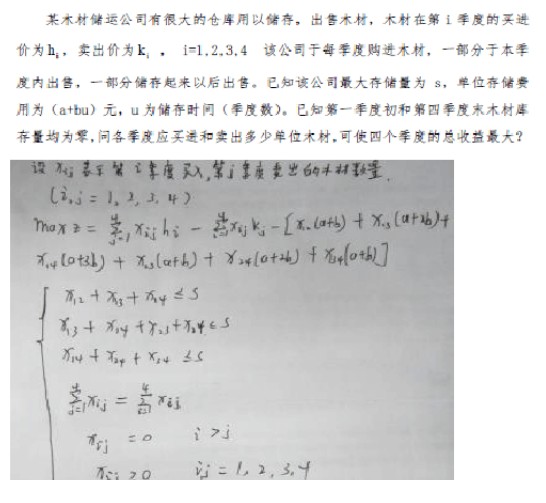 某木材储运公司有很大的仓库用以储存，出售木材，木材在第 i 季度的买进
价为 hᵢ，卖出价为 kᵢ ， i=1,2,3,4 该公司于每季度购进木材，一部分于本季
度内出售，一部分储存起来以后出售。已知该公司最大存储量为 s，单位存储费
用为（a+bu）元，u 为储存时间（季度数）。已知第一季度初和第四季度末木材库
存量均为零，问各季度应买进和卖出多少单位木材，可使四个季度的总收益最大？
设 xij 表示第 i 季度买入,第 j 季度卖出的木材数量.
(i,j = 1,2,3,4)
max z = Σ(j=1→4) xij hi − Σ xij kj − [x12(a+b) + x13(a+2b)+
x14(a+3b) + x23(a+b) + x24(a+2b) + x34(a+b)]
x12 + x13 + x14 ≤ S
x13 + x14 + x23 + x24 ≤ S
x14 + x24 + x34 ≤ S
Σ(j=1→4) xij = Σ(i=1→4) xij
xij = 0 i > j
xij > 0 i,j = 1,2,3,4